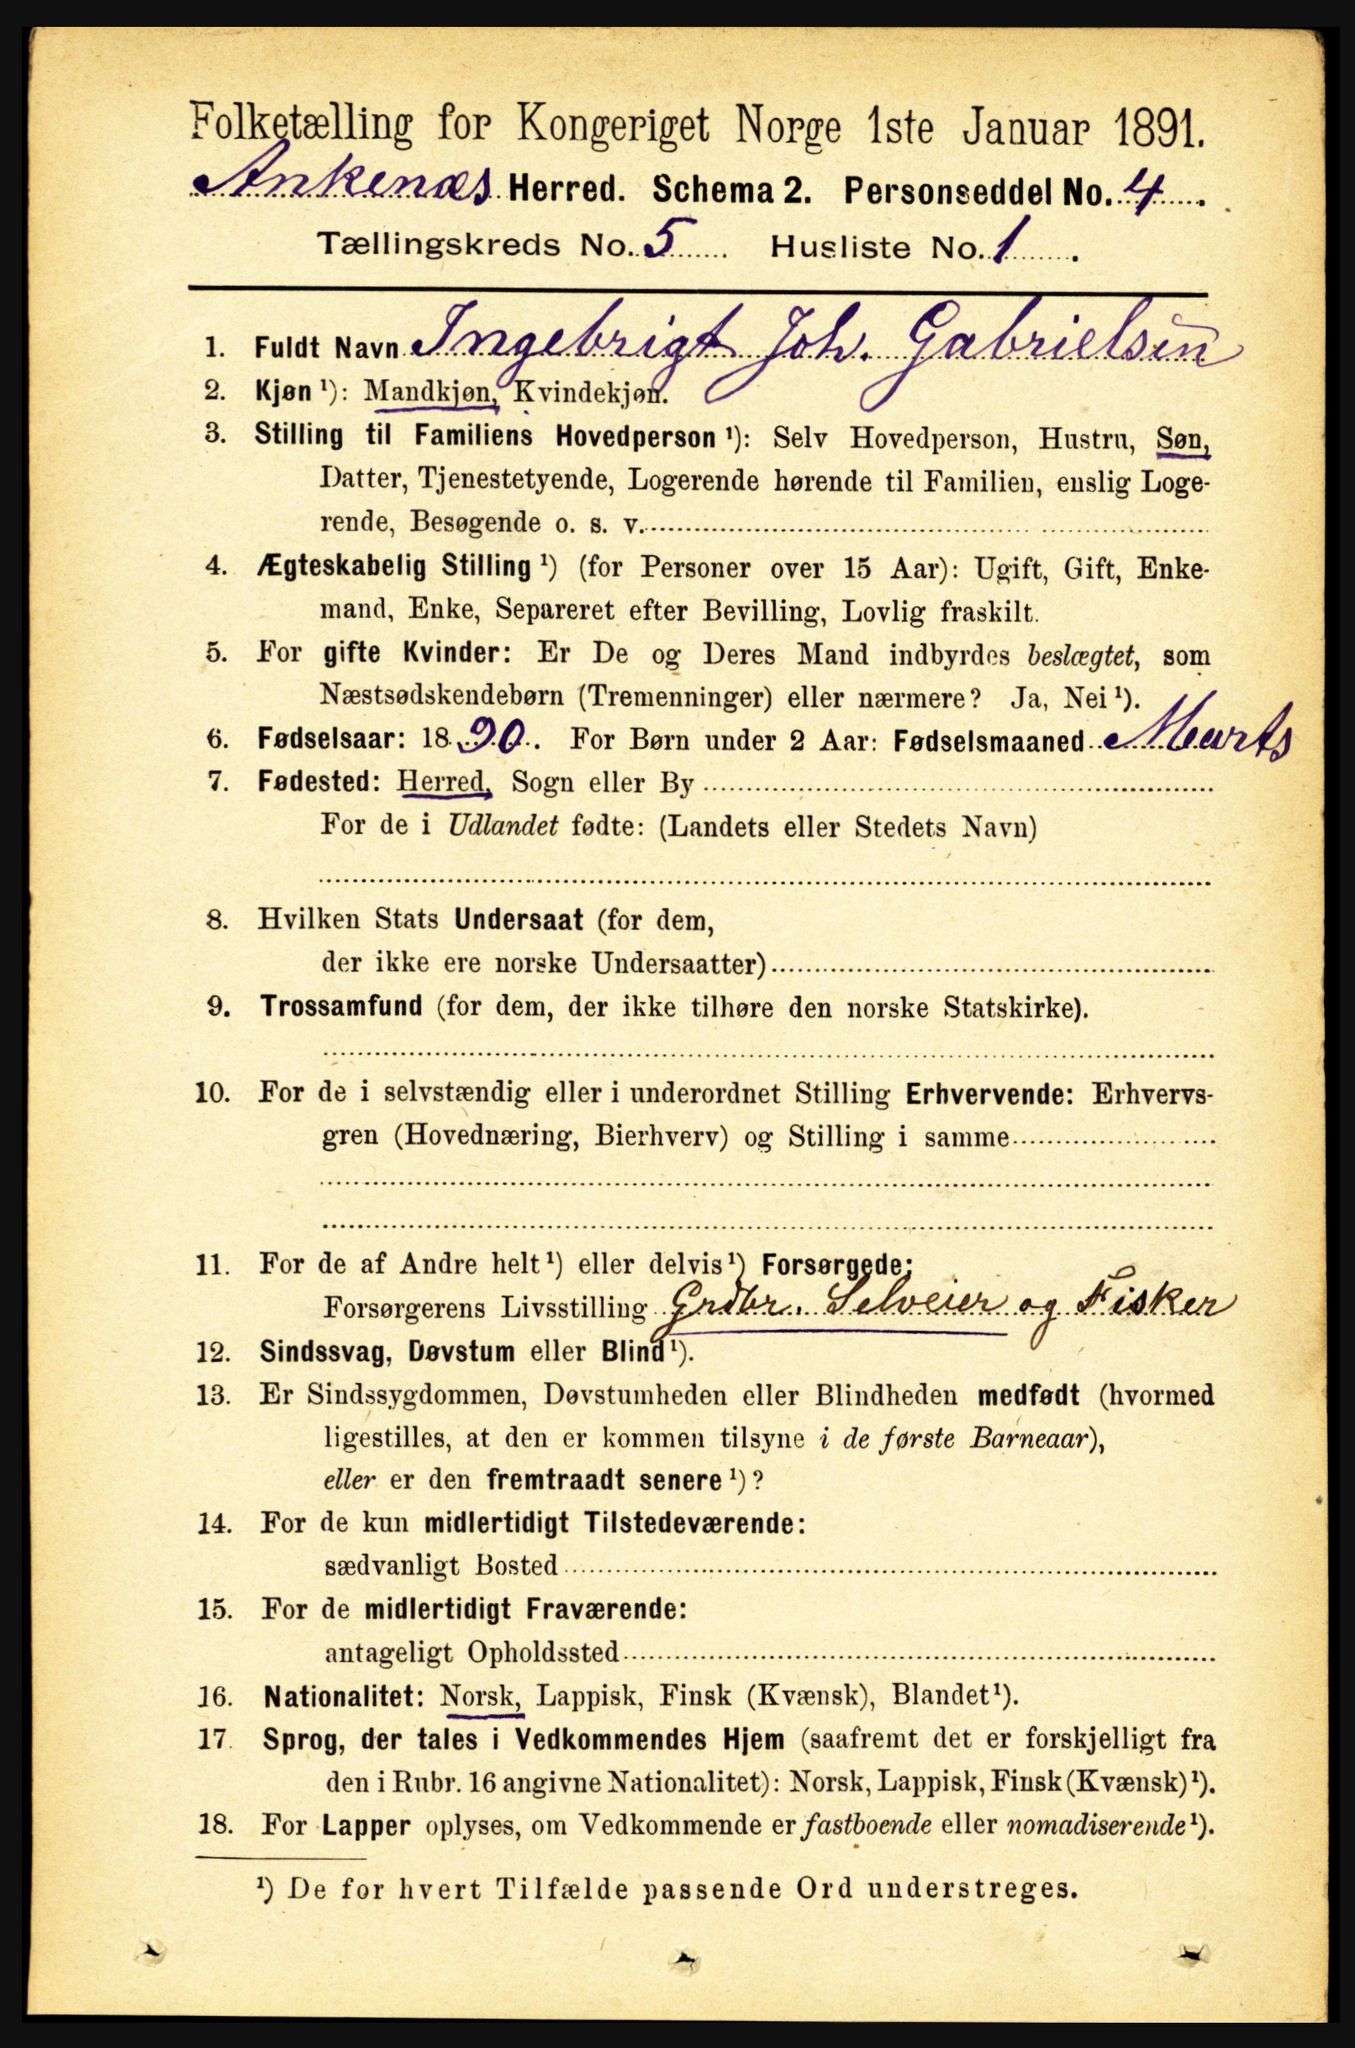 Folketælling for Kongeriget Norge 1ste Januar 1891.
Ankenæs Herred. Schema 2. Personseddel No. 4.
Tællingskreds No. 5 Husliste No. 1.
1. Fuldt Navn Ingebrigt Joh. Gabrielsen
2. Kjøn ¹): Mandkjøn, Kvindekjøn.
3. Stilling til Familiens Hovedperson ¹): Selv Hovedperson, Hustru, Søn,
Datter, Tjenestetyende, Logerende hørende til Familien, enslig Loge-
rende, Besøgende o. s. v.
4. Ægteskabelig Stilling ¹) (for Personer over 15 Aar): Ugift, Gift, Enke-
mand, Enke, Separeret efter Bevilling, Lovlig fraskilt.
5. For gifte Kvinder: Er De og Deres Mand indbyrdes beslægtet, som
Næstsødskendebørn (Tremenninger) eller nærmere? Ja, Nei ¹).
6. Fødselsaar: 1890. For Børn under 2 Aar: Fødselsmaaned Marts
7. Fødested: Herred, Sogn eller By
For de i Udlandet fødte: (Landets eller Stedets Navn)
8. Hvilken Stats Undersaat (for dem,
der ikke ere norske Undersaatter)
9. Trossamfund (for dem, der ikke tilhøre den norske Statskirke).
10. For de i selvstændig eller i underordnet Stilling Erhvervende: Erhvervs-
gren (Hovednæring, Bierhverv) og Stilling i samme
11. For de af Andre helt ¹) eller delvis ¹) Forsørgede:
Forsørgerens Livsstilling Grdbr. Selveier og Fisker
12. Sindssvag, Døvstum eller Blind ¹).
13. Er Sindssygdommen, Døvstumheden eller Blindheden medfødt (hvormed
ligestilles, at den er kommen tilsyne i de første Barneaar),
eller er den fremtraadt senere ¹)?
14. For de kun midlertidigt Tilstedeværende:
sædvanligt Bosted
15. For de midlertidigt Fraværende:
antageligt Opholdssted
16. Nationalitet: Norsk, Lappisk, Finsk (Kvænsk), Blandet ¹).
17. Sprog, der tales i Vedkommendes Hjem (saafremt det er forskjelligt fra
den i Rubr. 16 angivne Nationalitet): Norsk, Lappisk, Finsk (Kvænsk) ¹).
18. For Lapper oplyses, om Vedkommende er fastboende eller nomadiserende ¹).
¹) De for hvert Tilfælde passende Ord understreges.